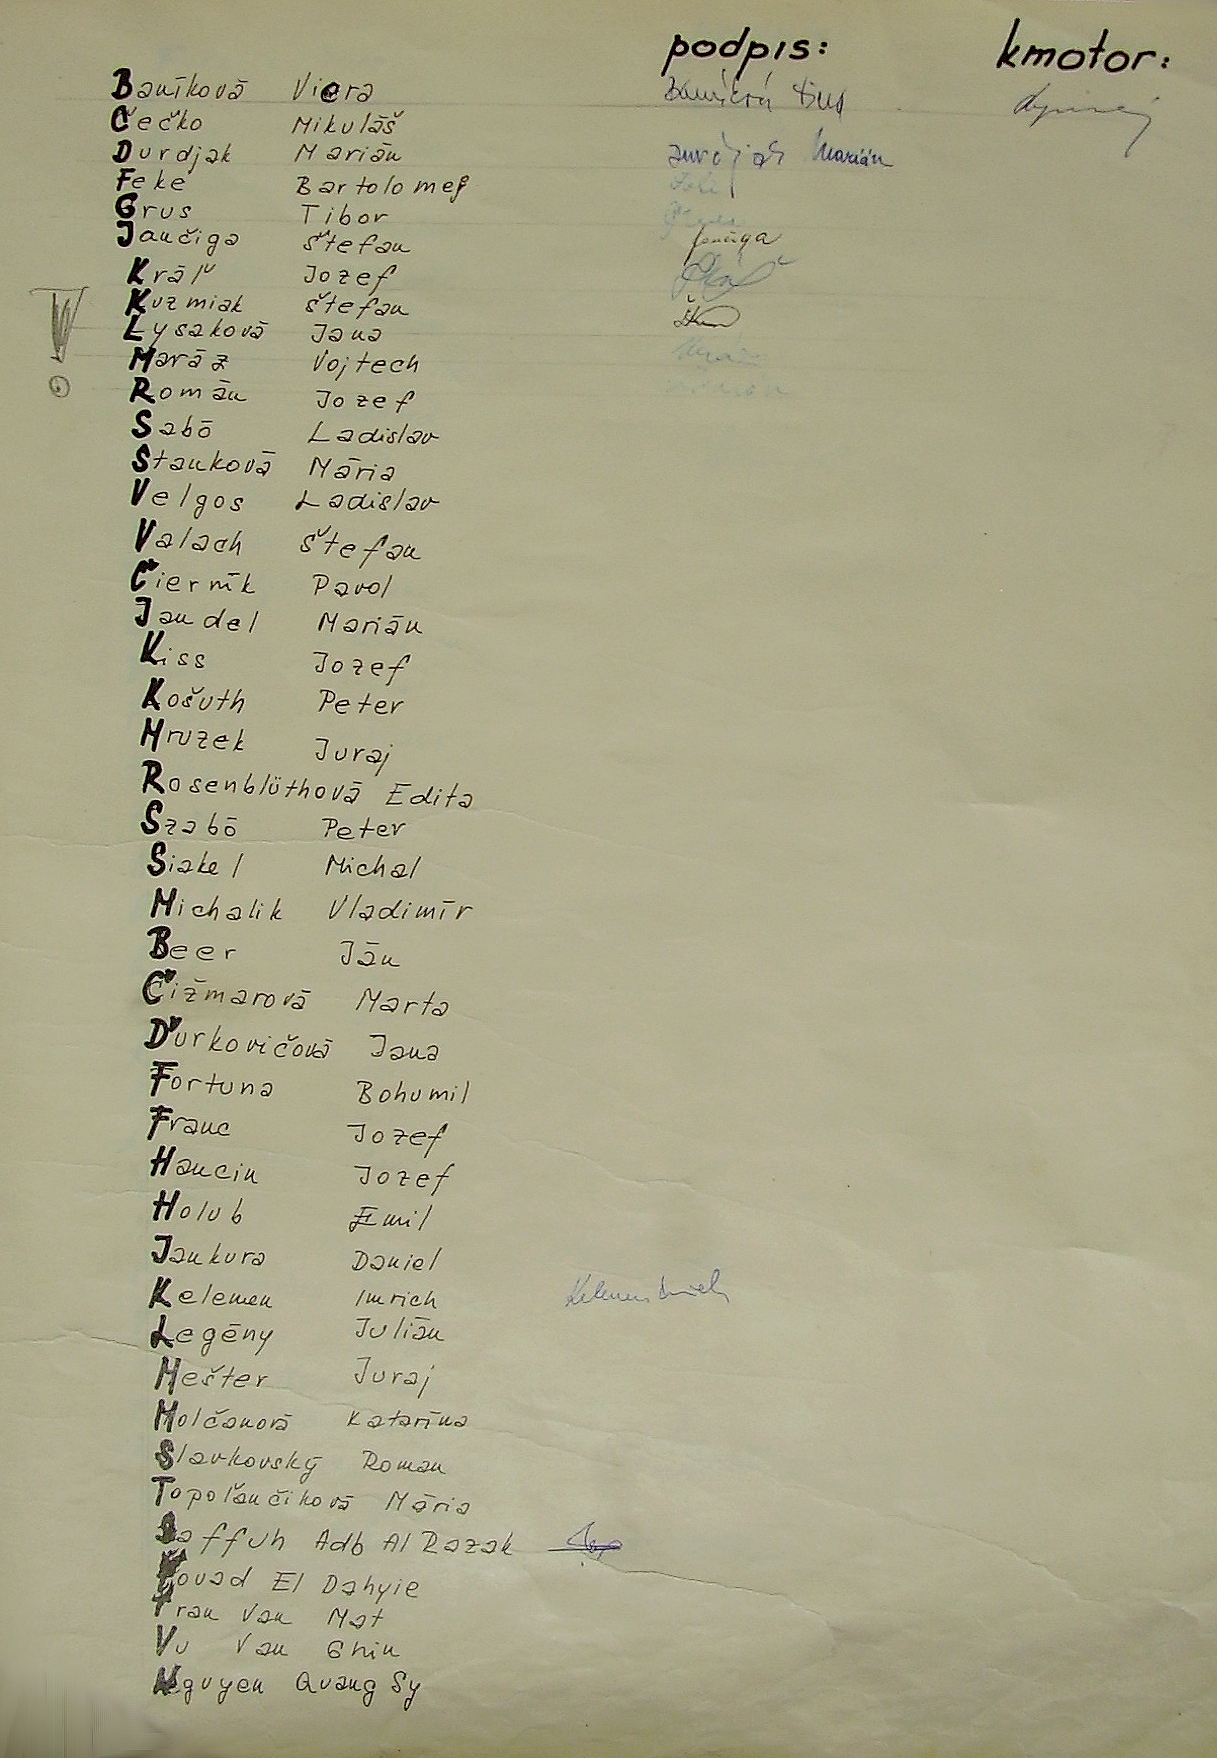 podpis: kmotor:
Baníková Viera
Čečko Mikuláš
Durdjak Marián Marián
Feke Bartolomej
Grus Tibor
Jančiga Štefan Jančiga
Kráľ Jozef
Kuzmiak Štefan
Lysaková Jana
Maráz Vojtech
Román Jozef
Sabó Ladislav
Stanková Mária
Velgos Ladislav
Valach Štefan
Čierník Pavol
Jandel Marián
Kiss Jozef
Košuth Peter
Mruzek Juraj
Rosenblüthová Edita
Szabó Peter
Siakel Michal
Michalik Vladimír
Beer Ján
Čižmarová Marta
Ďurkovičová Jana
Fortuna Bohumil
Franc Jozef
Hancin Jozef
Holub Emil
Jankura Daniel
Kelemen Imrich Kelemen Imrich
Legény Julián
Mešter Juraj
Molčanová Katarína
Slavkovský Roman
Topoľančiková Mária
Saffuh Adb Al Razak
Fouad El Dahyie
Tran Van Mat
Vu Van Ghin
Nguyen Quang Sy